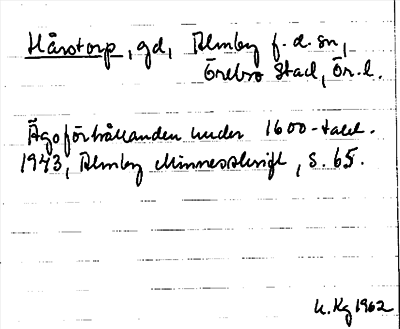 Hårstorp, gd, Almby f.d. sn,
Örebro Stad, Ör. l.
Ägoförhållanden under 1600-talet.
1943, Almby Minnesskrift, s. 65.
K. Kg 1962